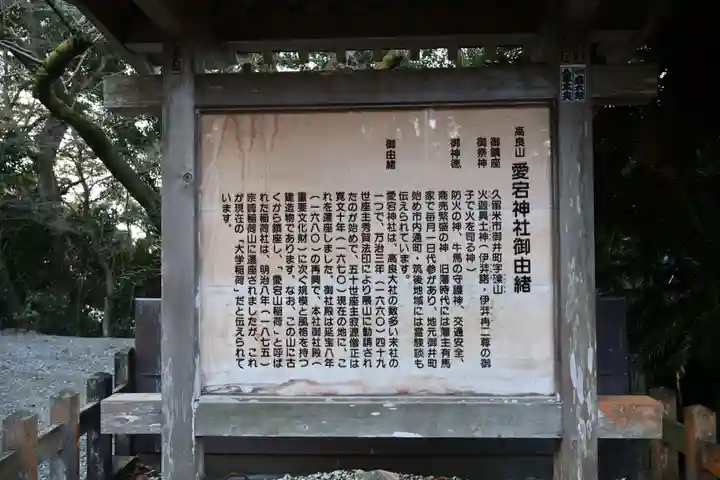 高良山 愛宕神社御由緒
御鎮座 久留米市御井町字漆山
御祭神 火迦具土神(伊弉諾・伊弉冉二尊の御
子で火を司る神)
御神徳 防火の神、牛馬の守護神、交通安全、
商売繁盛の神 旧藩時代には藩主有馬
家で毎月一日代参があり、地元御井町
始め市内通町・筑後地域には霊験談も
伝えられています。
御由緒 愛宕神社は、高良大社の数多い末社の
一つで、万治三年(一六六〇)四十九
世座主秀賀法印により隈山に勧請され
たのが始めで、五十世座主寂源僧正は
寛文十年(一六七〇)現在の地に、こ
れを遷座しました。御社殿は延宝八年
(一六八〇)の再興で、本社御社殿(
重要文化財)に次ぐ規模と風格を持つ
建造物であります。なお、この山に古
くから鎮座し、「愛宕山稲荷」と呼ば
れた稲荷社は、明治八年(一八七五)
宗崎稲荷山に遷座されましたが、これ
が現在の「大学稲荷」だと伝えられて
います。